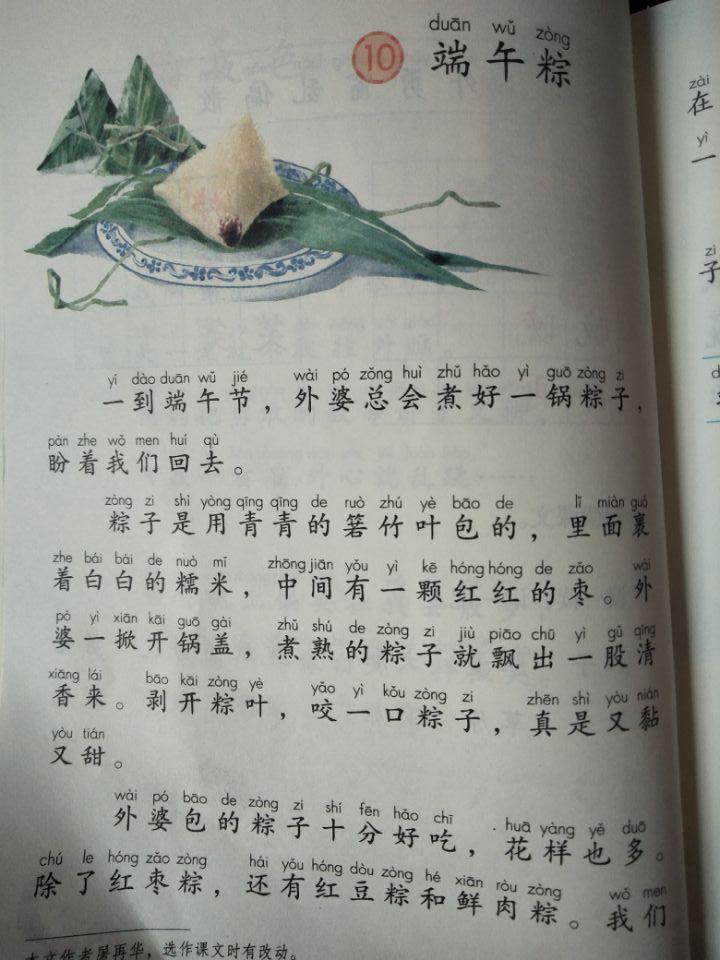 duān wǔ zòng
10 端午粽
yí dào duān wǔ jié wài pó zǒng huì zhǔ hǎo yì guō zòng zi
一到端午节，外婆总会煮好一锅粽子，
pàn zhe wǒ men huí qù
盼着我们回去。
zòng zi shì yòng qīng qīng de ruò zhú yè bāo de lǐ miàn guǒ
粽子是用青青的箬竹叶包的，里面裹
zhe bái bái de nuò mǐ zhōng jiān yǒu yì kē hóng hóng de zǎo wài
着白白的糯米，中间有一颗红红的枣。外
pó yì xiān kāi guō gài zhǔ shú de zòng zi jiù piāo chū yì gǔ qīng
婆一掀开锅盖，煮熟的粽子就飘出一股清
xiāng lái bāo kāi zòng yè yǎo yì kǒu zòng zi zhēn shì yòu nián
香来。剥开粽叶，咬一口粽子，真是又黏
yòu tián
又甜。
wài pó bāo de zòng zi shí fēn hǎo chī huā yàng yě duō
外婆包的粽子十分好吃，花样也多。
chú le hóng zǎo zòng hái yǒu hóng dòu zòng hé xiān ròu zòng wǒ men
除了红枣粽，还有红豆粽和鲜肉粽。我们
本文作者屠再华，选作课文时有改动。
zài
在
yì
一
zi
子